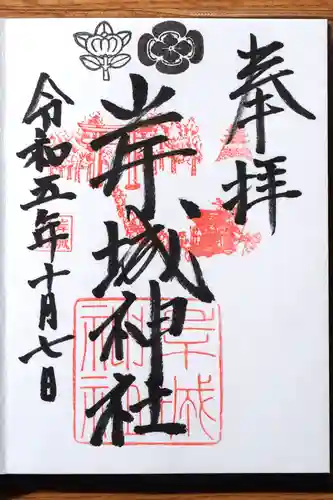 奉拝
岸城神社
令和五年十月七日
岸城
岸城神社